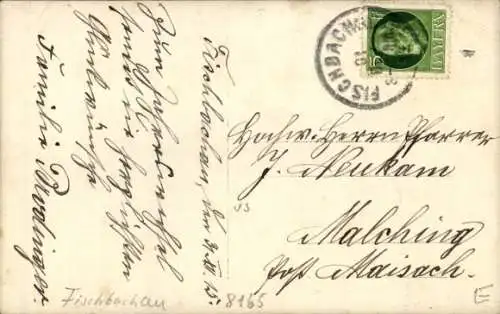 Fischbachau, den 31.XII.15.
Zum Jahreswechsel
sendet die herzlichsten
Glückwünsche
Familie
FISCHBACHAU
BAYERN
5
Hochw. Herrn Pfarrer
J. Neukam
Malching
Post Maisach.
Fischbachau
8165
E